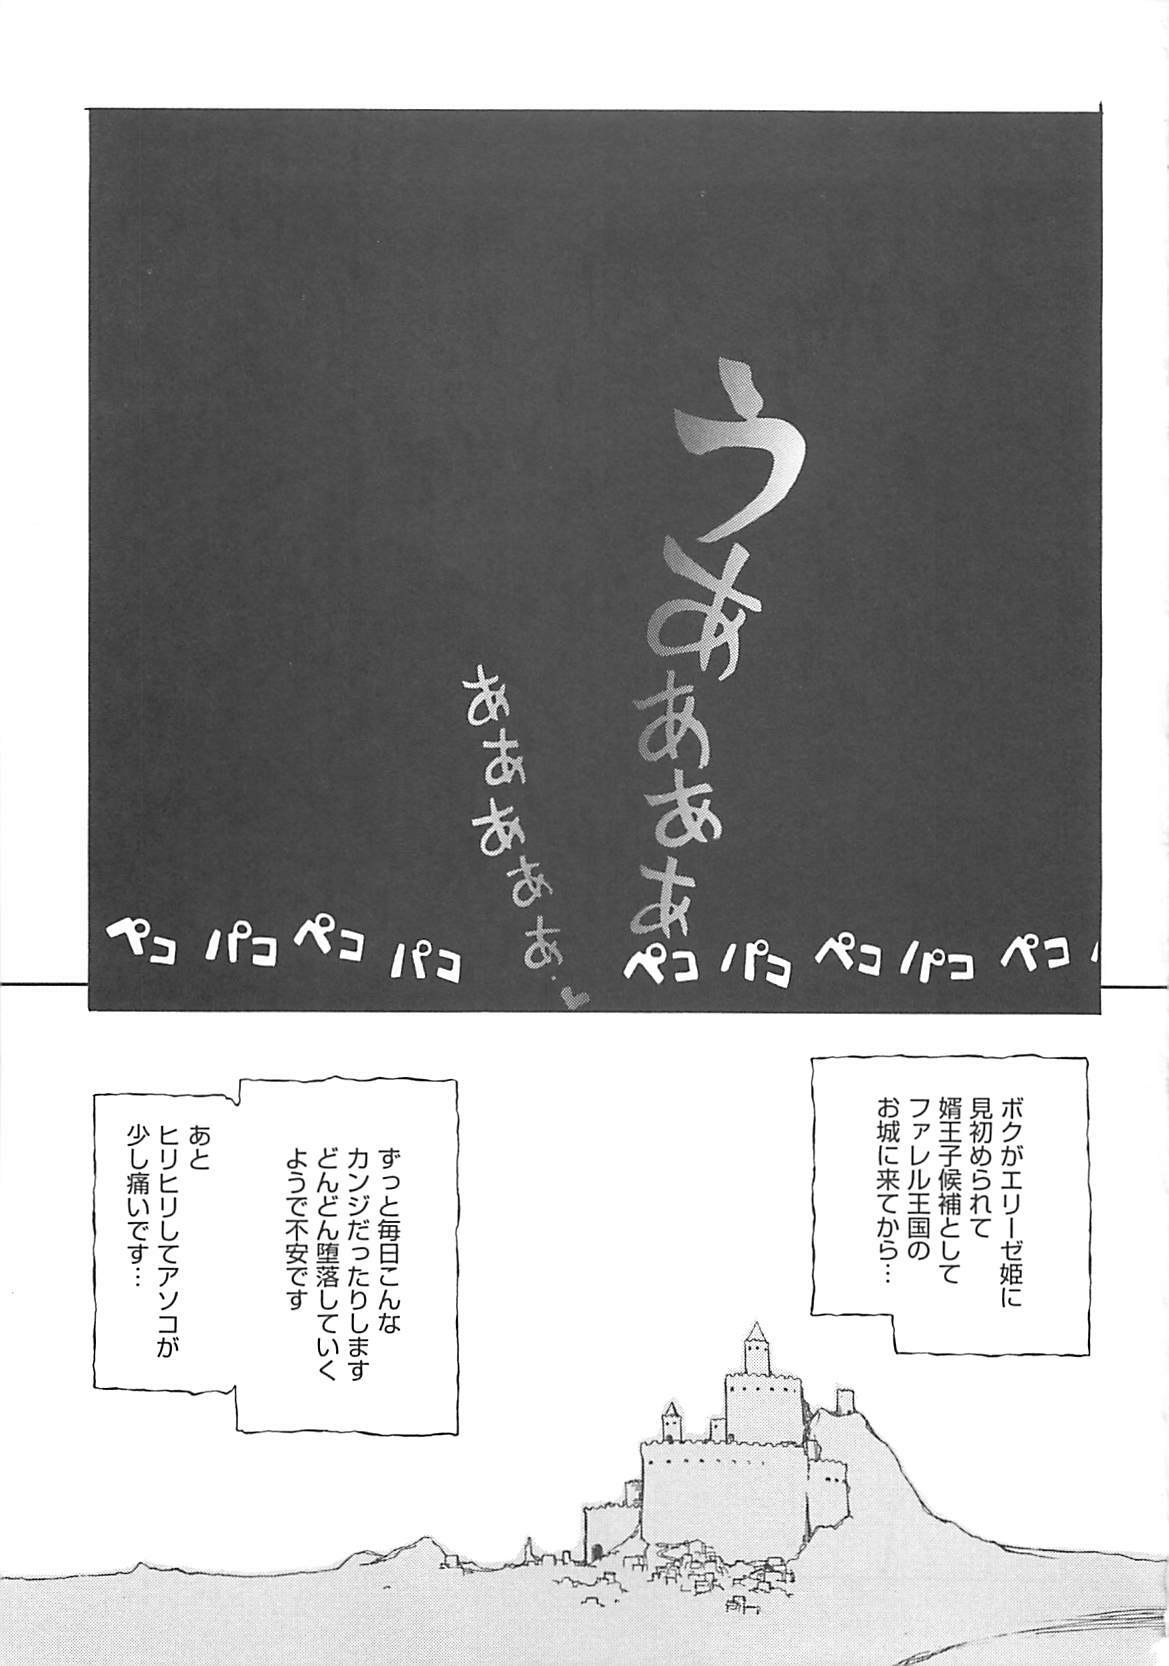 うあああぁ
あああぁぁ.♥
ペコ パコ ペコ パコ ペコ パコ ペコ パコ ペコ
ボクがエリーゼ姫に
見初められて
婿王子候補として
ファレル王国の
お城に来てから…
ずっと毎日こんな
カンジだったりします
どんどん堕落していく
ようで不安です
あと
ヒリヒリしてアソコが
少し痛いです…